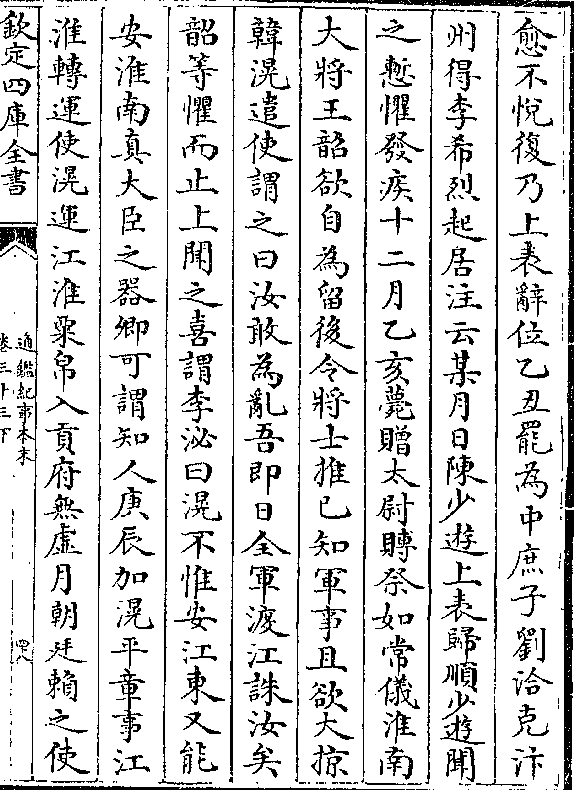 愈不悅復乃上表辭位乙丑罷為中庶子劉洽克汴
州得李希烈起居注云某月日陳少遊上表歸順少遊聞
之慙懼發疾十二月乙亥薨贈太尉賻祭如常儀淮南
大將王韶欲自為留後令將士推已知軍事且欲大掠
韓滉遣使謂之曰汝敢為亂吾即日全軍渡江誅汝矣
韶等懼而止上聞之喜謂李泌曰滉不惟安江東又能
安淮南真大臣之器卿可謂知人庚辰加滉平章事江
淮轉運使滉運江淮粟帛入貢府無虛月朝廷賴之使
欽定四庫全書
通鑑紀事本末
卷三十三下
四八